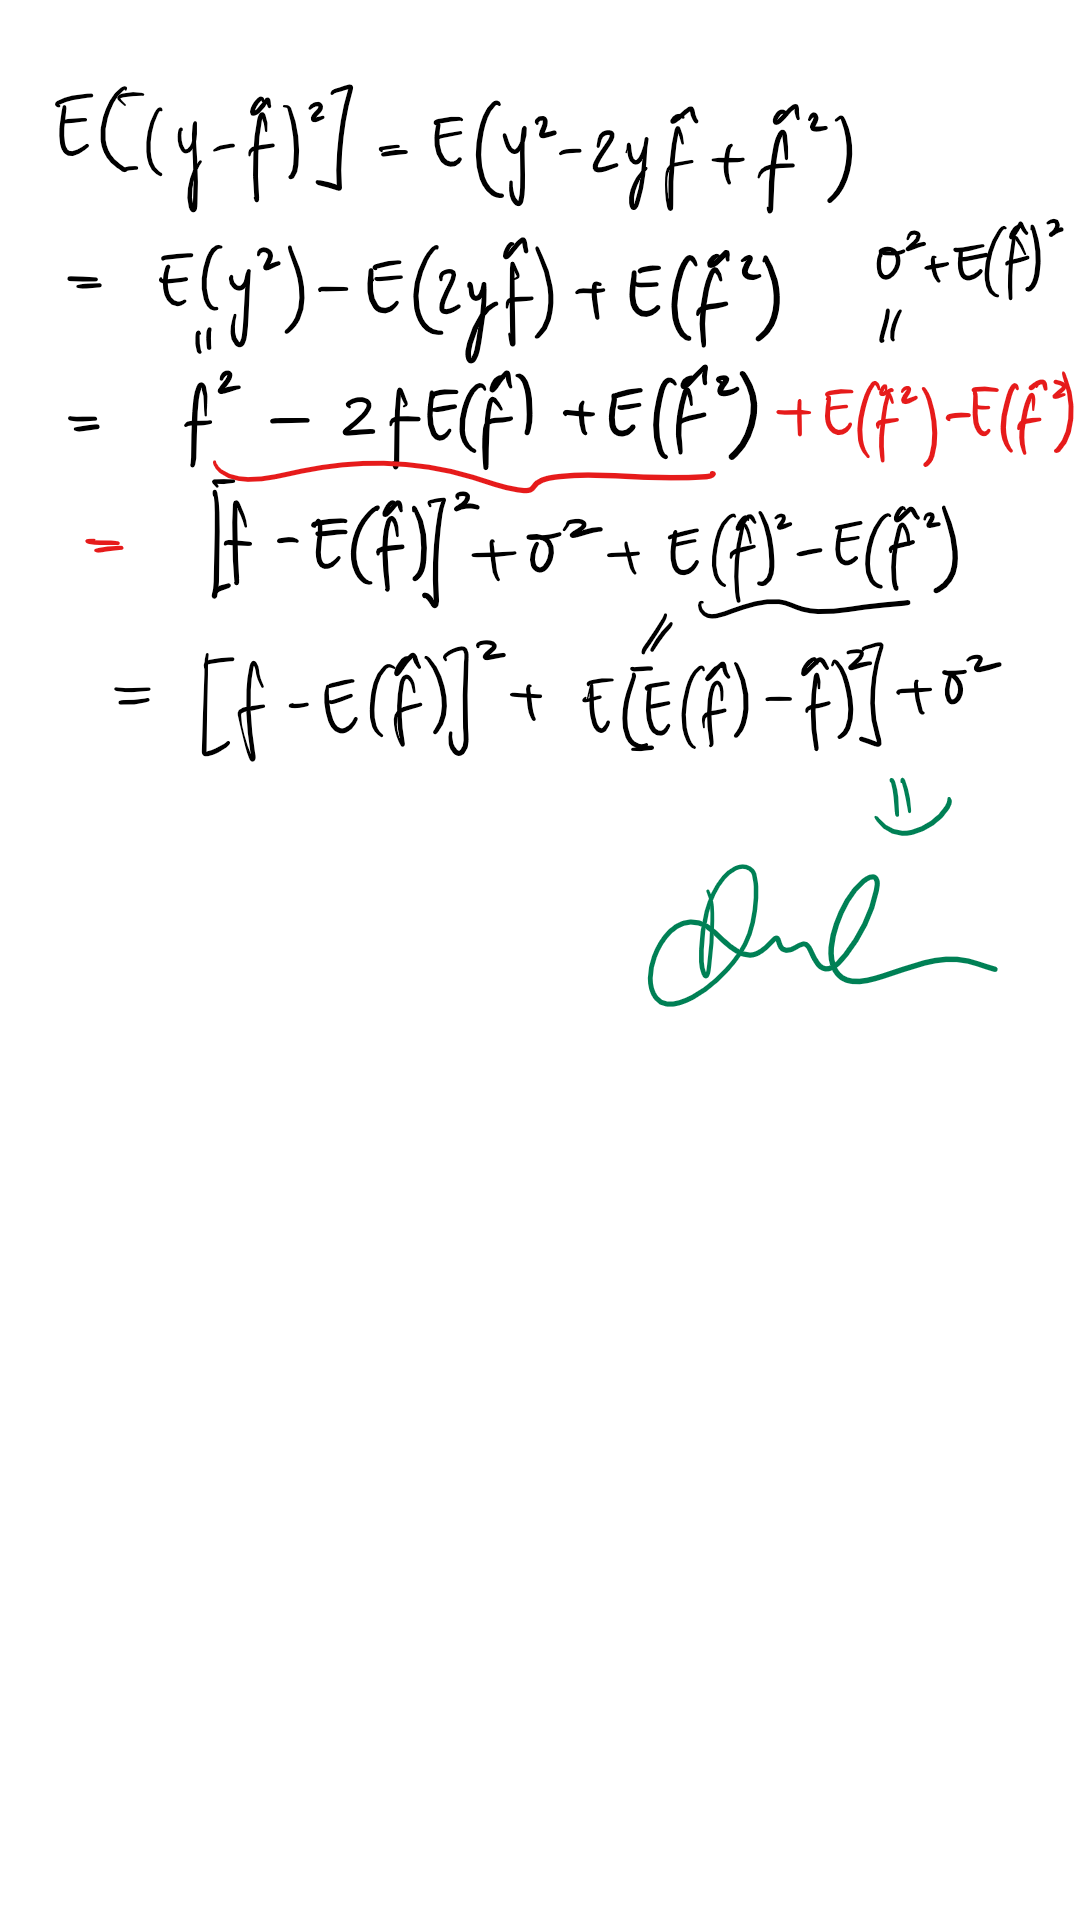 E[(y-f̂)²] = E(y²-2yf̂+f̂²)
= E(y²) - E(2yf̂) + E(f̂²)
σ²+E(f̂)²
= f² - 2fE(f̂) + E(f̂²) + E(f̂²) - E(f̂²)
= [f - E(f̂)]² + σ² + E(f̂)² - E(f̂²)
= [f - E(f̂)]² + E[(E(f̂) - f̂)²] + σ²